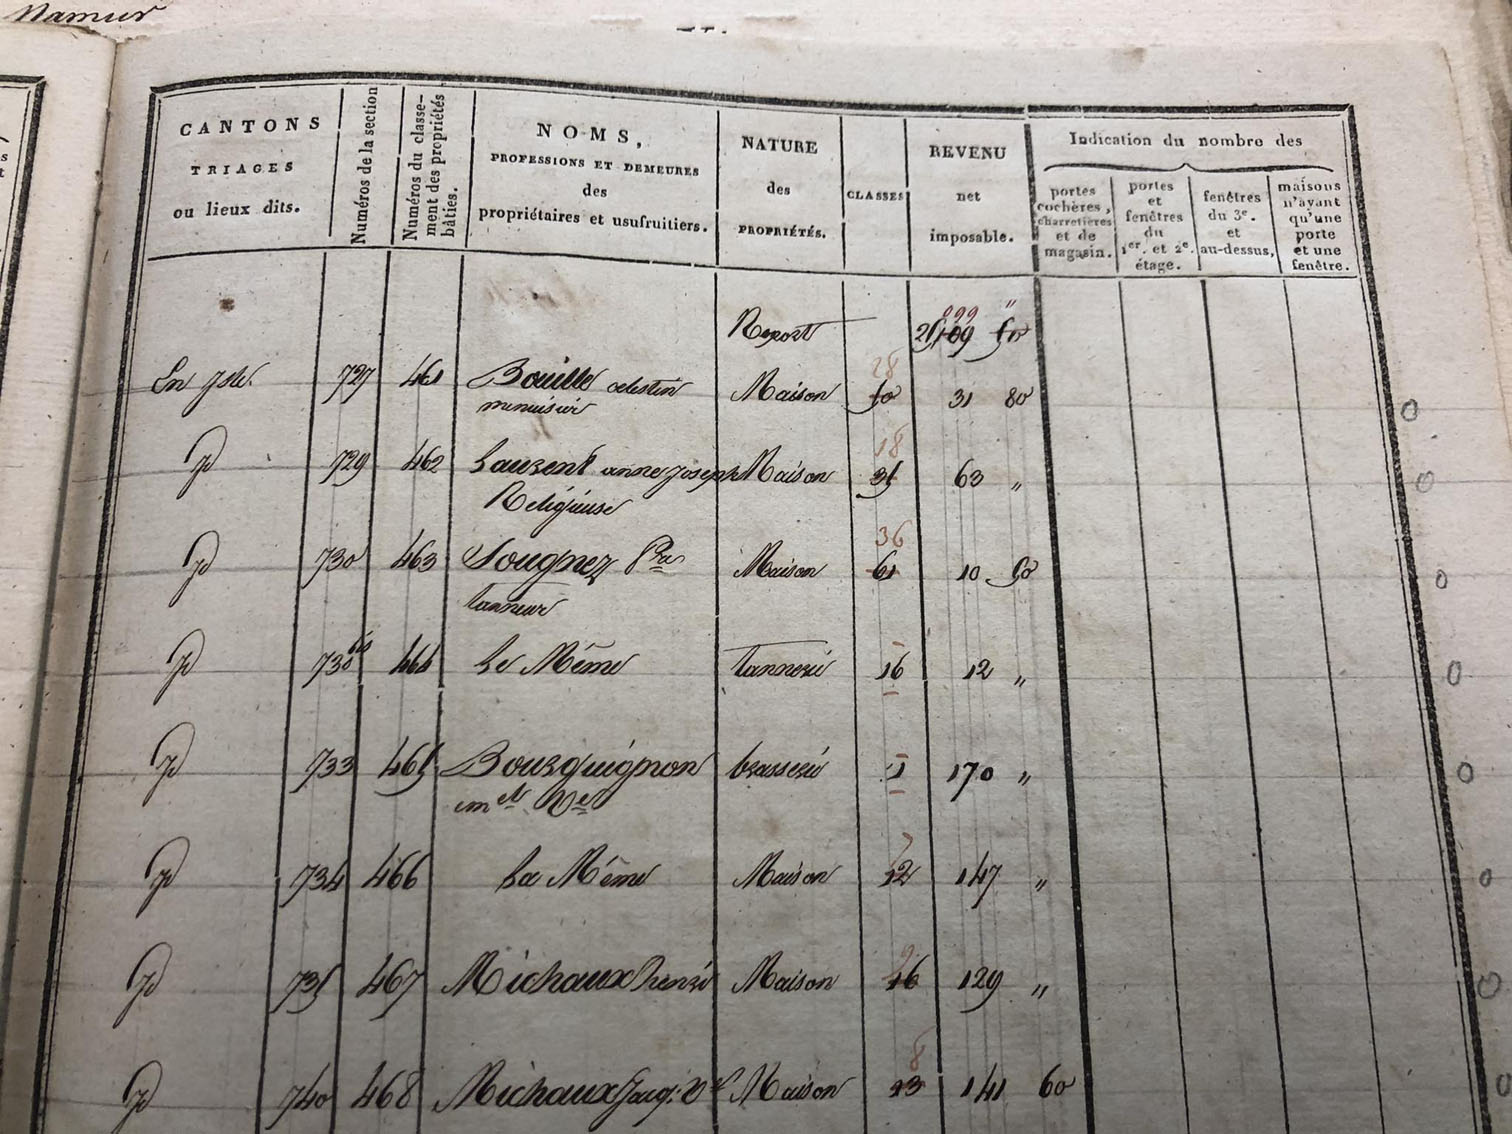 Namur
CANTONS
TRIAGES
ou lieux dits.
Numéros de la section
Numéros du classe-
ment des propriétés
bâties.
NOMS,
PROFESSIONS ET DEMEURES
des
propriétaires et usufruitiers.
NATURE
des
PROPRIÉTÉS.
CLASSES
REVENU
net
imposable.
Indication du nombre des
portes
cochères,
charretières
et de
magasin.
portes
et
fenêtres
du
1er. et 2e.
étage.
fenêtres
du 3e.
et
au-dessus,
maisons
n'ayant
qu'une
porte
et une
fenêtre.
099 "
Report
28
En Isle 727 461 Bouille celestin Maison 50 31 80 0
menuisier
18
Jd 729 462 Laurent anne Joseph Maison 35 63 " 0
Religieuse
36
Jd 730 463 Sougnez Pre Maison 61 10 50 0
tanneur
Jd 730 bis 464 Le Même tannerie 16 12 " 0
Jd 733 465 Bourguignon brasserie 1 170 " 0
Ve
7
Jd 734 466 La Même Maison 12 147 " 0
9
Jd 735 467 Michaux henri Maison 16 129 " 0
8
Jd 740 468 Michaux Jacq. Maison 13 141 60 0